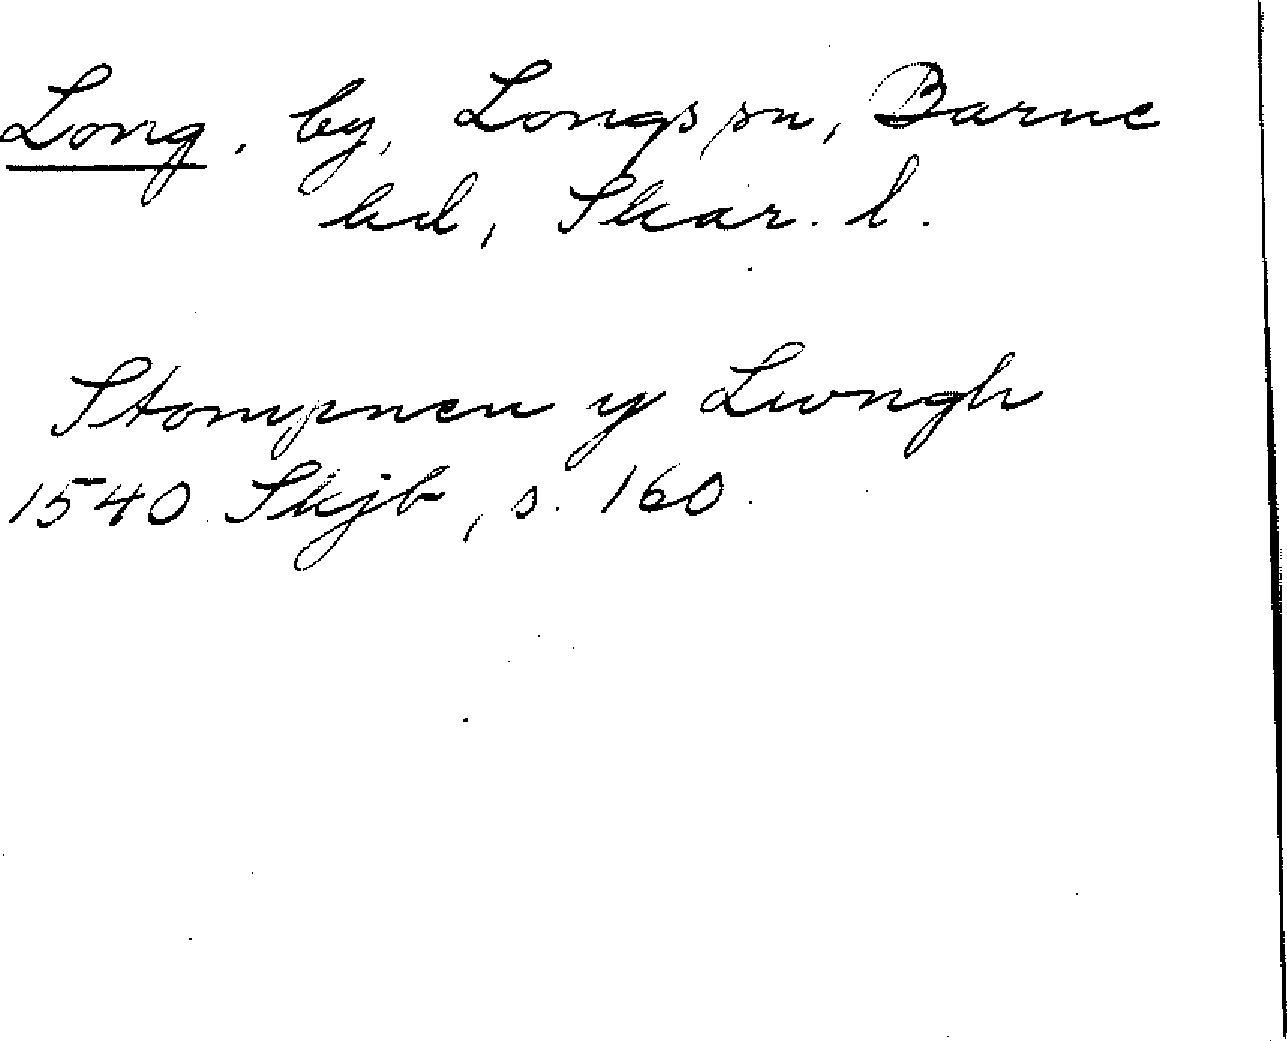 Long, by, Longs sn, Barne
hd, Skar. l.
Stompnen y Lwngh
1540 Skjb, s. 160.